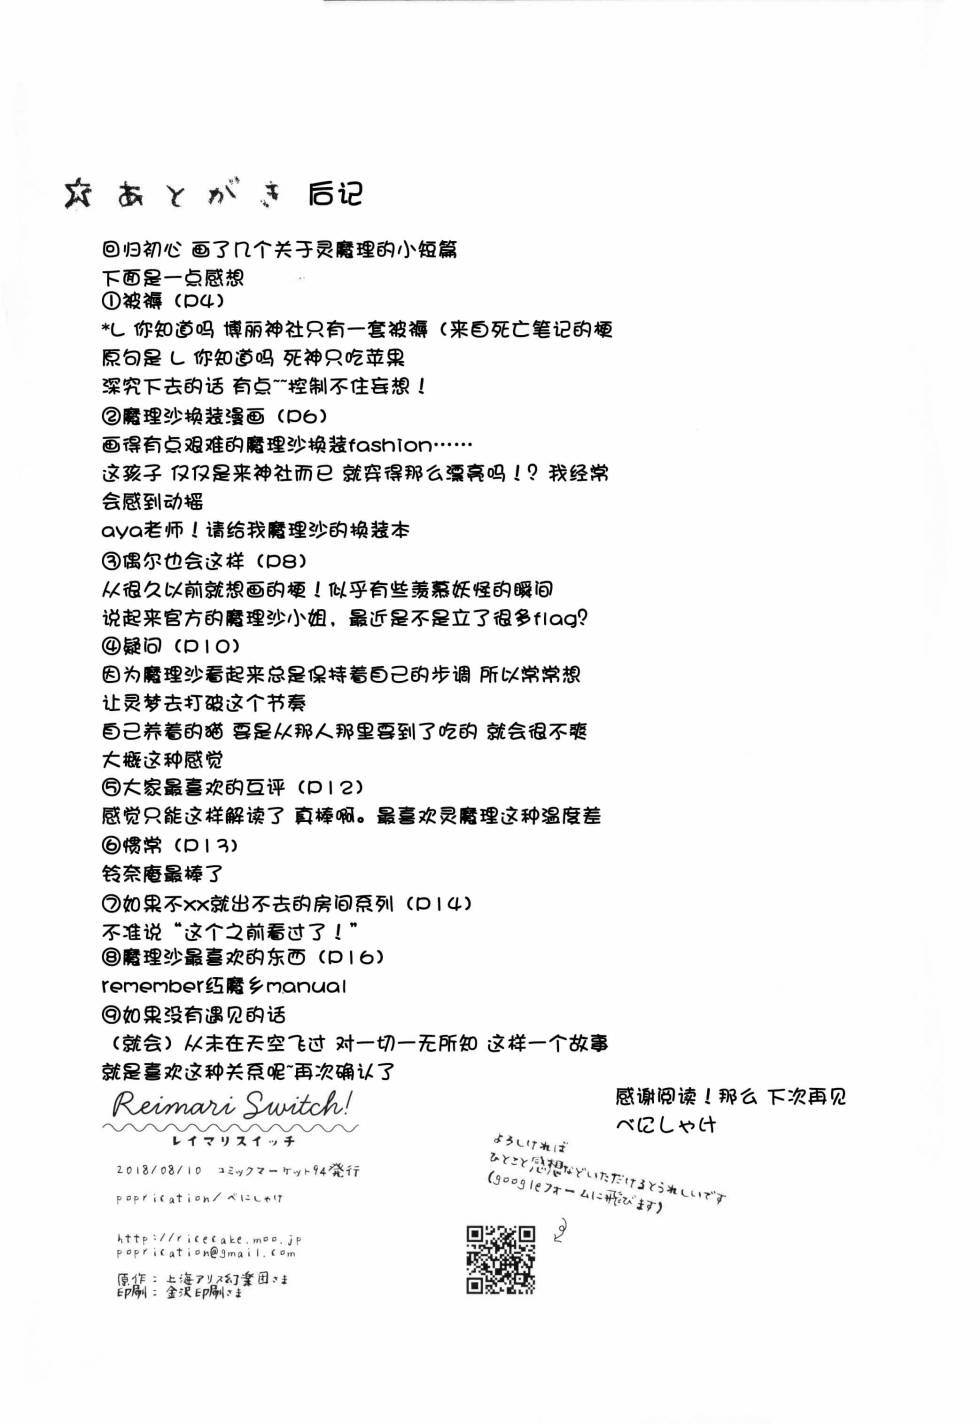 ☆あとがき 后记
回归初心 画了几个关于灵魔理的小短篇
下面是一点感想
①被褥（P4）
*L 你知道吗 博丽神社只有一套被褥（来自死亡笔记的梗
原句是 L 你知道吗 死神只吃苹果
深究下去的话 有点~~控制不住妄想！
②魔理沙换装漫画（P6）
画得有点艰难的魔理沙换装fashion……
这孩子 仅仅是来神社而已 就穿得那么漂亮吗！？我经常
会感到动摇
aya老师！请给我魔理沙的换装本
③偶尔也会这样（P8）
从很久以前就想画的梗！似乎有些羡慕妖怪的瞬间
说起来官方的魔理沙小姐，最近是不是立了很多flag？
④疑问（P10）
因为魔理沙看起来总是保持着自己的步调 所以常常想
让灵梦去打破这个节奏
自己养着的猫 要是从那人那里要到了吃的 就会很不爽
大概这种感觉
⑤大家最喜欢的互评（P12）
感觉只能这样解读了 真棒啊。最喜欢灵魔理这种温度差
⑥惯常（P13）
铃奈庵最棒了
⑦如果不xx就出不去的房间系列（P14）
不准说“这个之前看过了！”
⑧魔理沙最喜欢的东西（P16）
remember红魔乡manual
⑨如果没有遇见的话
（就会）从未在天空飞过 对一切一无所知 这样一个故事
就是喜欢这种关系呢~再次确认了
感谢阅读！那么 下次再见
べにしゃけ
Reimari Switch!
レイマリスイッチ
2018/08/10 コミックマーケット94発行
poprication/べにしゃけ
http://ricecake.moo.jp
poprication@gmail.com
原作：上海アリス幻樂団さま
印刷：金沢印刷さま
よろしければ
ひとこと感想などいただけるとうれしいです
(googleフォームに飛びます)